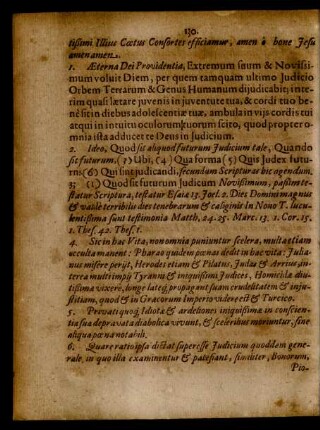 130.
tissimi Illius Cœtus Consortes efficiamur, amen ô bone Jesu
amen amen.
1. Æterna Dei Providentia, Extremum suum & Novissi-
mum voluit Diem, per quem tamquam ultimo Judicio
Orbem Terrarum & Genus Humanum dijudicabit; inte-
rim quasi lætare juvenis in juventute tua, & cordi tuo be-
nè sit in diebus adolescentiæ tuæ, ambula in vijs cordis tui
atqui in intuitu oculorum tuorum scito, quod propter o-
mnia ista adducet te Deus in Judicium.
2. Ideo, Quod sit aliquod futurum Judicium tale, Quando
sic futurum, (3) Ubi, (4) Qua forma (5) Quis Judex futu-
rus (6) Qui sint judicandi, secundum Scripturas hic agendum.
3. (1) Quod sit futurum Judicium Novissimum, passim te-
statur Scriptura, testatur Esaia 13. Joel. 2. Dies Domini magnus
& valde terribilis dies tenebrarum & caliginis In Novo T. lucu-
lentissima sunt testimonia Matth. 24. 25. Marc. 13. 1. Cor. 15.
1. Thes. 42. Thes. 1.
4. Sic in hac Vita, non omnia puniuntur scelera, multa etiam
occulta manent: Pharao quidem pœnas dedit in hac vita: Julia-
nus miserè perijt, Herodes etiam & Pilatus, Judas & Arrius, in-
terea multi impij Tyranni & iniquissimi Judices, Homicidæ diu-
tissimè vixerè, longe lateq; propagant suam crudelitatem & inju-
stitiam, quod & in Græcorum Imperio videre est & Turcico.
5. Privati quoq; Idiotæ & ardeliones iniquissimæ in conscien-
tia sua depravata diabolica vivunt, & sceleribus moriuntur, sine
aliqua pœna notabili.
6. Quare ratio ipsa dictat superesse Judicium quoddam gene-
rale, in quo illa examinentur & patefiant, similiter, Bonorum,
Pio-